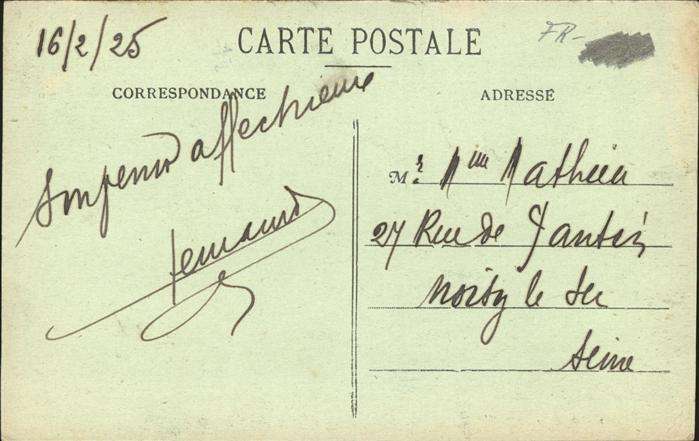 16/2/25
CARTE POSTALE
FR-
CORRESPONDANCE
ADRESSE
Souvenir affectueux
Fernand
Mr Mme Mathieu
27 Rue de Pantin
Noisy le Sec
Seine